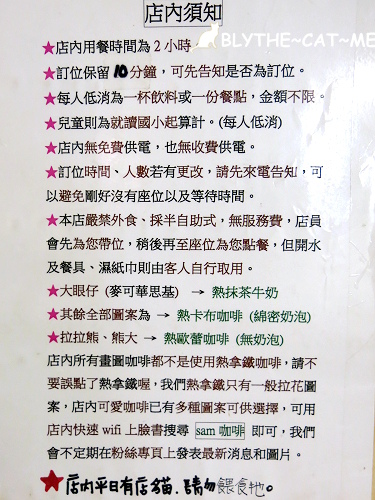 店內須知
BLYTHE~CAT~ME
★店內用餐時間為 2 小時
★訂位保留 10 分鐘，可先告知是否為訂位。
★每人低消為一杯飲料或一份餐點，金額不限。
★兒童則為就讀國小起算計。(每人低消)
★店內無免費供電，也無收費供電。
★訂位時間、人數若有更改，請先來電告知，可
以避免剛好沒有座位以及等待時間。
★本店嚴禁外食、採半自助式，無服務費，店員
會先為您帶位，稍後再至座位為您點餐，但開水
及餐具、濕紙巾則由客人自行取用。
★大眼仔 (麥可華思基) → 熱抹茶牛奶
★其餘全部圖案為 → 熱卡布咖啡 (綿密奶泡)
★拉拉熊、熊大 → 熱歐蕾咖啡 (無奶泡)
店內所有畫圖咖啡都不是使用熱拿鐵咖啡，請不
要誤點了熱拿鐵喔，我們熱拿鐵只有一般拉花圖
案，店內可愛咖啡已有多種圖案可供選擇，可用
店內快速 wifi 上臉書搜尋 sam 咖啡 即可，我們
會不定期在粉絲專頁上發表最新消息和圖片。
★店內平日有店貓，請勿餵食牠。